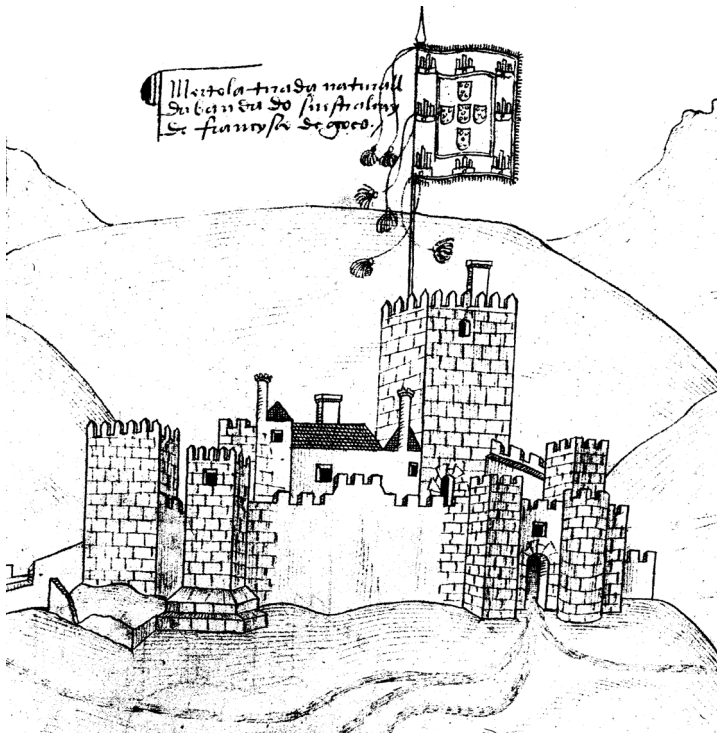 Mertola tirada naturall
da banda do
de francysco de goes.